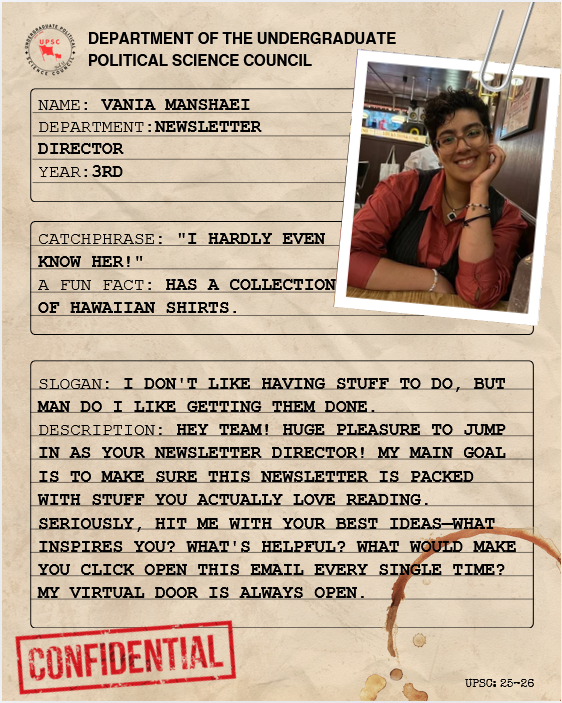 UNDERGRADUATE POLITICAL
UPSC
SCIENCE COUNCIL
DEPARTMENT OF THE UNDERGRADUATE
POLITICAL SCIENCE COUNCIL
NAME: VANIA MANSHAEI
DEPARTMENT:NEWSLETTER
DIRECTOR
YEAR:3RD
CATCHPHRASE: "I HARDLY EVEN
KNOW HER!"
A FUN FACT: HAS A COLLECTION
OF HAWAIIAN SHIRTS.
SLOGAN: I DON'T LIKE HAVING STUFF TO DO, BUT
MAN DO I LIKE GETTING THEM DONE.
DESCRIPTION: HEY TEAM! HUGE PLEASURE TO JUMP
IN AS YOUR NEWSLETTER DIRECTOR! MY MAIN GOAL
IS TO MAKE SURE THIS NEWSLETTER IS PACKED
WITH STUFF YOU ACTUALLY LOVE READING.
SERIOUSLY, HIT ME WITH YOUR BEST IDEAS—WHAT
INSPIRES YOU? WHAT'S HELPFUL? WHAT WOULD MAKE
YOU CLICK OPEN THIS EMAIL EVERY SINGLE TIME?
MY VIRTUAL DOOR IS ALWAYS OPEN.
CONFIDENTIAL
UPSC: 25-26